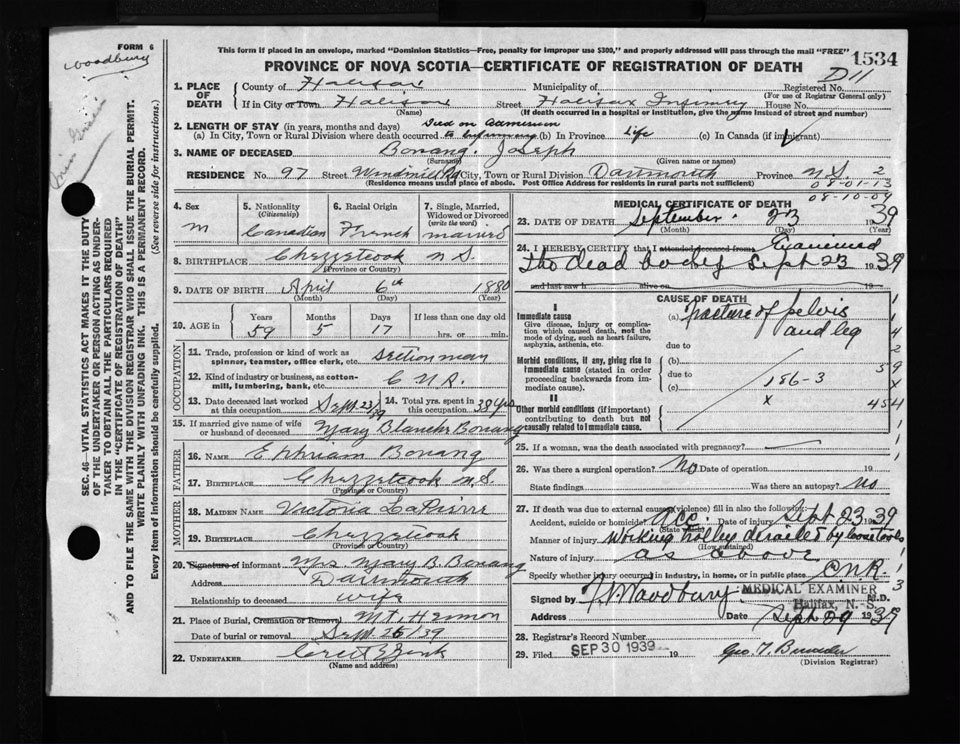 FORM 6
woodbury
This form if placed in an envelope, marked "Dominion Statistics—Free, penalty for improper use $300," and properly addressed will pass through the mail "FREE"
1534
PROVINCE OF NOVA SCOTIA—CERTIFICATE OF REGISTRATION OF DEATH
D11
SEC. 46 VITAL STATISTICS ACT MAKES IT THE DUTY
OF THE UNDERTAKER OR PERSON ACTING AS UNDER-
TAKER TO OBTAIN ALL THE PARTICULARS REQUIRED
IN THE "CERTIFICATE OF REGISTRATION OF DEATH"
AND TO FILE THE SAME WITH THE DIVISION REGISTRAR WHO SHALL ISSUE THE BURIAL PERMIT.
WRITE PLAINLY WITH UNFADING INK. THIS IS A PERMANENT RECORD.
Every item of information should be carefully supplied. (See reverse side for instructions.)
1. PLACE OF DEATH County of Halifax Municipality of Registered No.
(For use of Registrar General only)
If in City or Town Halifax Street Halifax Infirmary House No.
(Name) (If death occurred in a hospital or institution, give the name instead of street and number)
2. LENGTH OF STAY (in years, months and days) Died on admission
(a) In City, Town or Rural Division where death occurred to Infirmary (b) In Province Life (c) In Canada (if immigrant)
3. NAME OF DECEASED Bonang. Joseph
(Surname) (Given name or names)
RESIDENCE No. 97 Street Windmill Rd City, Town or Rural Division Dartmouth Province N.S. 2
(Residence means usual place of abode. Post Office Address for residents in rural parts not sufficient)
08-01-13
08-10-09
4. Sex 5. Nationality (Citizenship) 6. Racial Origin 7. Single, Married, Widowed or Divorced (write the word)
m Canadian French married
8. BIRTHPLACE Chezzetcook N.S.
(Province or Country)
9. DATE OF BIRTH April 6th 1880
(Month) (Day) (Year)
10. AGE in Years Months Days If less than one day
59 5 17 hrs. or min.
OCCUPATION
11. Trade, profession or kind of work as spinner, teamster, office clerk, etc. Sectionman
12. Kind of industry or business, as cotton-mill, lumbering, bank, etc. C N R.
13. Date deceased last worked at this occupation Sept 23/39 14. Total yrs. spent in this occupation 38 yrs
15. If married give name of wife or husband of deceased Mary Blanche Bonang
FATHER
16. NAME Ephriam Bonang
17. BIRTHPLACE Chezzetcook N.S.
(Province or Country)
MOTHER
18. MAIDEN NAME Victoria LaPierre
19. BIRTHPLACE Chezzetcook
(Province or Country)
20. Signature of informant Mrs. Mary B. Bonang
Address Dartmouth
Relationship to deceased wife
21. Place of Burial, Cremation or Removal Mt. Hermon
Date of burial or removal Sept 26/39
22. UNDERTAKER
(Name and Address)
MEDICAL CERTIFICATE OF DEATH
23. DATE OF DEATH September. 23 1939
(Month) (Day) (Year)
24. I HEREBY CERTIFY that I attended deceased from Examined
the dead body Sept 23 1939
and last saw h alive on 19
CAUSE OF DEATH
I
Immediate cause (a) fracture of pelvis
and leg
Give disease, injury or complication which caused death, not the mode of dying, such as heart failure, asphyxia, asthenia, etc.
due to
Morbid conditions, if any, giving rise to immediate cause (stated in order proceeding backwards from immediate cause).
(b)
due to
(c) 186-3
x
II
Other morbid conditions (if important) contributing to death but not causally related to immediate cause.
25. If a woman, was the death associated with pregnancy?
26. Was there a surgical operation? No Date of operation 19
State findings Was there an autopsy? No
27. If death was due to external causes (violence) fill in also the following:
Accident, suicide or homicide? Acc. Date of injury Sept 23 1939
(State which)
Manner of injury Working trolley derailed by loose tools
(How sustained)
Nature of injury as above
Specify whether injury occurred in industry, in home, or in public place C.N.R.
Signed by Woodbury. M.D.
MEDICAL EXAMINER
Halifax, N.S.
Address Date Sept 29 1939
28. Registrar's Record Number
29. Filed SEP 30 1939 19
(Division Registrar)